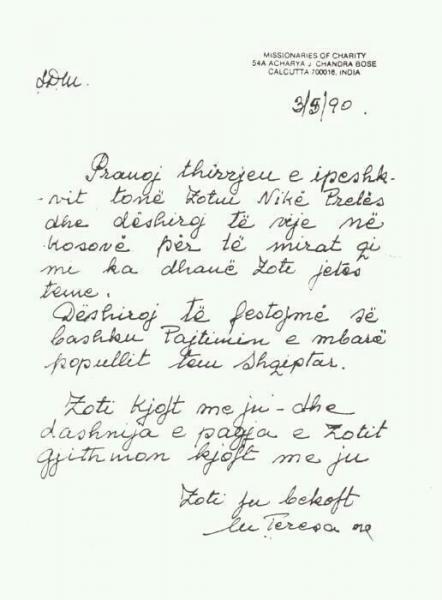 MISSIONARIES OF CHARITY
54A ACHARYA J. CHANDRA BOSE
CALCUTTA 700016, INDIA
LDM.
3/5/90.
Pranoj thirrjeu e ipeshk-
-vit tonë Zotui Nikë Prelës
dhe dëshiroj të vije në
Kosovë për të mirat qi
mi ka dhanë Zoti jetës
teme.
Dëshiroj të festojmë së
bashku Pajtimin e mbarë
popullit tem Shqiptar.
Zoti Kjoft me ju - dhe
dashnija e pagja e Zotit
Gjithmon kjoft me ju
Zoti ju bekoft
M Teresa mc